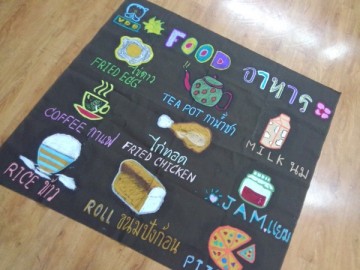 FOOD อาหาร
ไข่ดาว
FRIED EGG
TEA POT กาน้ำชา
MILK นม
COFFEE กาแฟ
ไก่ทอด
FRIED CHICKEN
JAM แยม
RICE ข้าว
ROLL ขนมปังก้อน